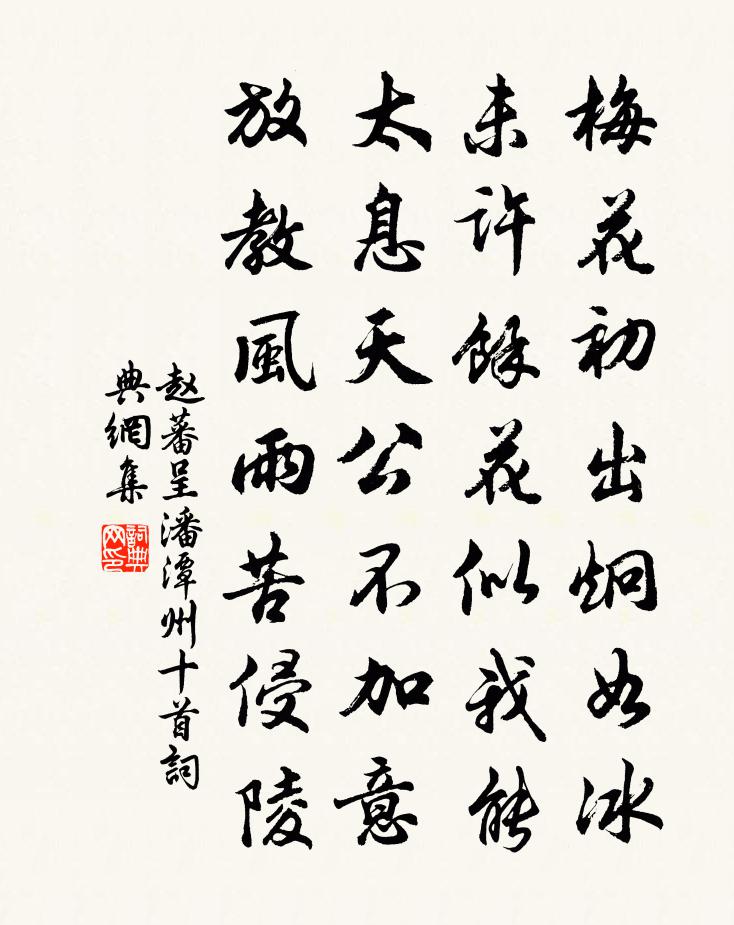 梅花初出炯如冰
未許餘花似我能
太息天公不加意
放教風雨苦侵陵
赵蕃呈潘潭州十首詞
典網集
詞典
网印